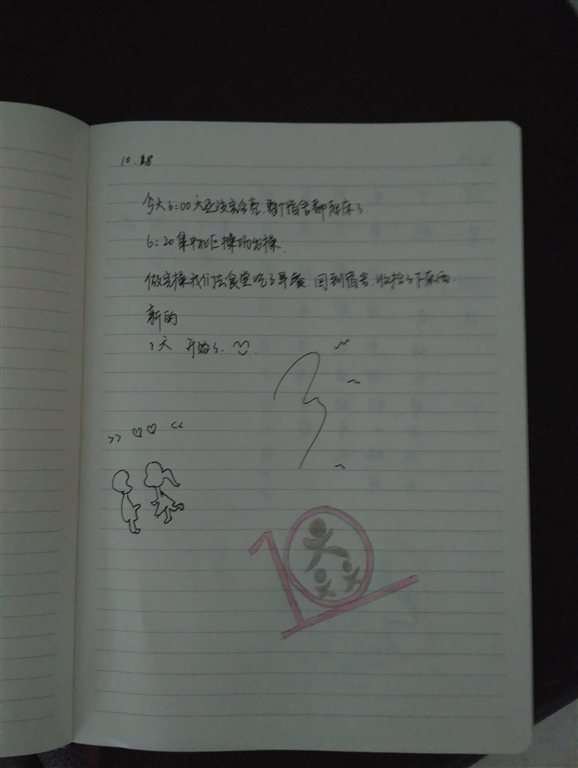 10.18
今天6:00天还没完全亮,整个宿舍都起床了
6:20集中地区操场出操
做完操我们去食堂吃了早餐,回到宿舍,收拾了下东西
新的
1天 开始了.